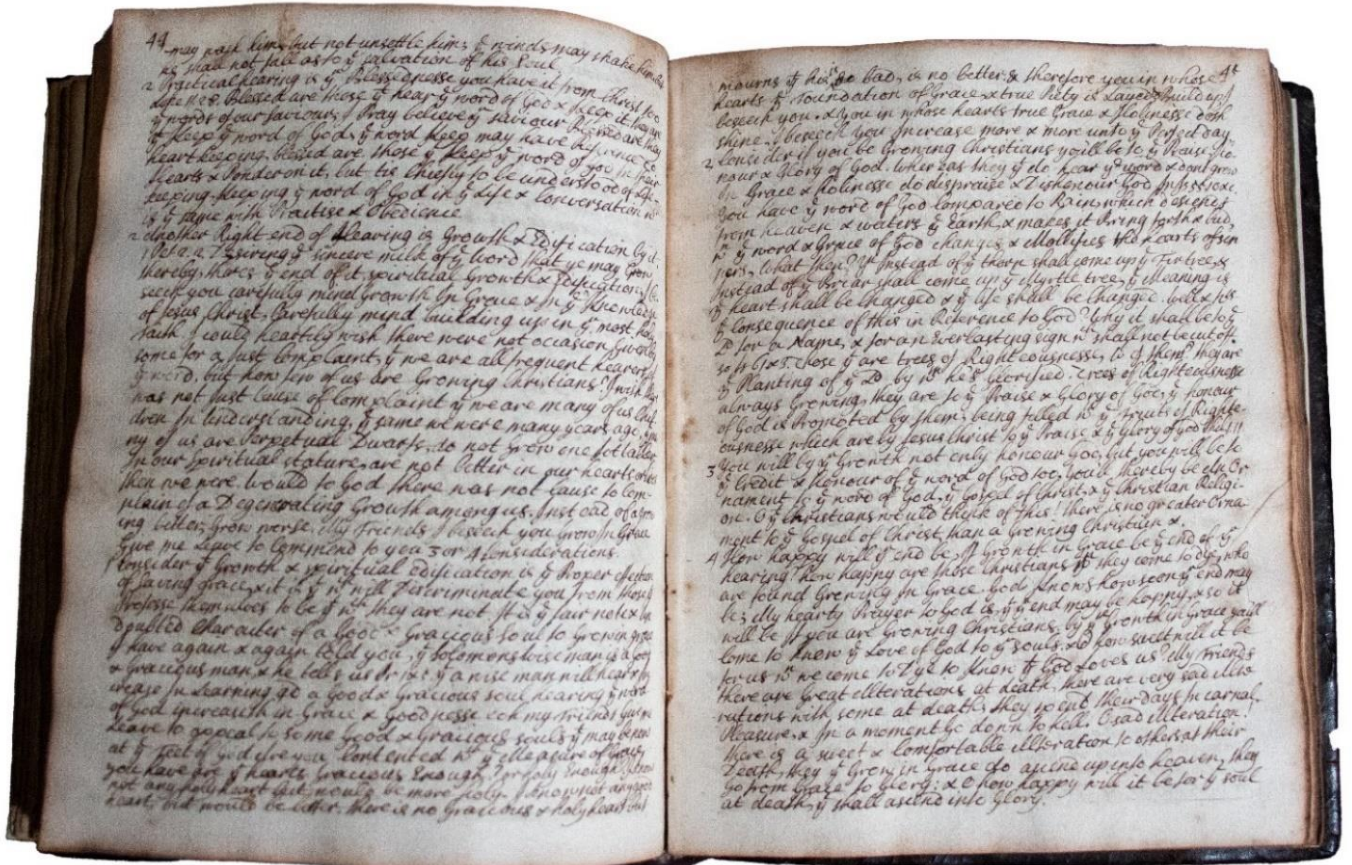 44
may rash him, but not unsettle him; ẙ winds may shake him, he
shall not fall as to ẙ salvation of his Soul
2 Practical hearing is ẙ blessednesse you have it from Christ too
Blessed are those ẙ hear ẙ word of God & keep it, they are
ẙ words of our Saviour, I Pray believe ẙ saviour Blessed are they
ẙ keep ẙ word of God, ẙ word keep may have reference to
heart keeping, blessed are those ẙ keep ẙ word of God in their
hearts & Ponder on it, but tis Chiefly to be understood of life
keeping, keeping ẙ word of God in ẙ life & conversation
is ẙ same with Practise & Obedience
2 Another Right end of Hearing is Growth & Edification by it.
1 Pet 2.2. Desiring ẙ sincere milk of ẙ Word that ye may Grow
thereby, theres ẙ end of it spiritual Growth & Edification, I be
seech you carefully mind Growth In Grace & In ẙ Knowledge
of Jesus Christ. Carefully mind building up in ẙ most holy
faith. I could heartily wish there were not occasion Given by
some for a Just Complaint, ẙ we are all frequent hearers of
ẙ word, but how few of us are Growing Christians. I wish there
was not Just cause of Complaint ẙ we are many of us Chil
dren In understanding, ẙ same we were many years ago,
ny of us are Perpetual Dwarfs, do not Grow one jot taller
In our Spiritual stature, are not better in our hearts
then we were. Would to God there was not cause to Com-
plain of a Degenerating Growth among us. Instead of grow
ing better, Grow worse. My friends I beseech you Grow In Grace
Give me leave to commend to you 3 or 4 Considerations.
1 Consider ẙ Growth & spiritual edification is ẙ Proper effect
of saving grace, & it is ẙ wᵗ will Discriminate you from those ẙ
Professe themselves to be ẙ wᵗ they are not. It is ẙ fair note & un
doubted Character of a Good & Gracious soul to Grow in grace
I have again & again told you, ẙ Solomons wise man is a Good
& Gracious man, & he tells us ẙ a wise man will hear & in
crease In Learning, so a Good & Gracious soul, hearing ẙ word
of God increaseth in Grace & Goodnesse my friends Give me
Leave to appeal to some Good & Gracious souls ẙ may be now
at ẙ feet of God are you Contented wᵗ ẙ Measure of Grace
you have are ẙ hearts Gracious Enough, or holy Enough, I know
not any holy heart but would be more holy. I know not any good
heart, but would be better. there is no Gracious & holy heart but
44
mourns ẙ his so bad, is no better, & therefore you in whose
hearts ẙ foundation of Grace & true Piety is Layed Build up I
beseech you. & you in whose hearts true Grace & Holinesse doth
shine, I beseech you Increase more & more unto ẙ Perfect day
2 Consider if you be Growing Christians you'll be to ẙ Praise Ho-
nour & Glory of God. whereas they ẙ do hear ẙ word & dont grow
In Grace & Holinesse do dispraise & Dishonour God
You have ẙ word of God Compared to Rain, which descends
from heaven & waters ẙ Earth, & makes it Bring forth & bud,
ẙ word & Grace of God changes & Mollifies the hearts of sin
ners. What then? Why Instead of ẙ thorn shall come up ẙ Firtree &
Instead of ẙ Briar shall come up ẙ Myrtle tree, ẙ Meaning is
ẙ heart shall be Changed & ẙ life shall be changed. well & whats
ẙ consequence of this in Reference to God? Why it shall be to ẙ
Ld for a Name, & for an Everlasting sign wᵗ shall not be cut off.
so Is 61 & 3. those ẙ are trees of Righteousnesse, to of them: they are
ẙ Planting of ẙ Ld by wᵗ he's Glorified. Trees of Righteousnesse
always Growing, they are to ẙ Praise & Glory of God, ẙ honour
of God is Promoted by them, being filled wᵗ ẙ fruits of Righte-
ousnesse which are by Jesus Christ to ẙ Praise & ẙ Glory of God
3 You will by ẙ Growth not only honour God, but you will be to
ẙ Credit & Honour of ẙ word of God too, You'll thereby be An Or
nament to ẙ word of God, ẙ Gospel of Christ, & ẙ Christian Religi-
on. O ẙ Christians would think of this! there is no greater Orna
ment to ẙ Gospel of Christ, than a Growing Christian &.
4 How happy will ẙ end be, If Growth in Grace be ẙ end of ẙ
hearing! how happy are those Christians wᵗ they come to dye, who
are found Growing In Grace. God knows how soon ẙ end may
be; My hearty Prayer to God is, ẙ ẙ end may be happy, & so it
will be if you are Growing Christians, by ẙ Growth in Grace you'll
come to know ẙ Love of God to ẙ souls. & O how sweet will it be
for us wᵗ we come to Dye to know ẙ God Loves us. My friends
there are Great Alterations at death, there are very sad Alte
rations with some at death, they spent their days In carnal
Pleasure, & In a moment Go down to hell. O sad Alteration!
there is a sweet & Comfortable Alteration to others at their
Death, they ẙ Grow in Grace do ascend up into heaven, they
Go from Grace to Glory: & O how happy will it be for ẙ soul
at death, ẙ shall ascend into Glory.